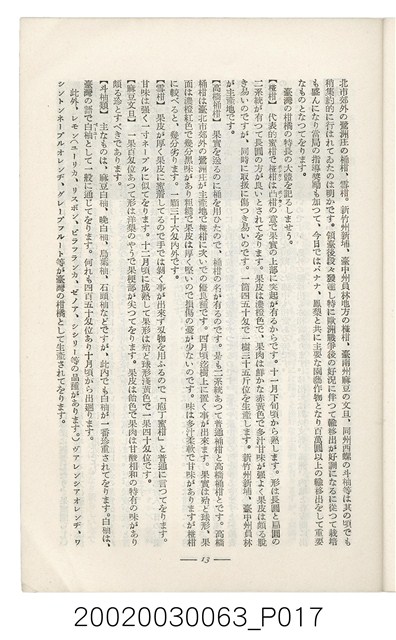 北市郊外の鷺洲庄の桶柑、雪柑。新竹州新埔、臺中州員林地方の椪柑、臺南州麻豆の文旦、同州西螺の斗柚等は其の頃でも
稍集約的に行はれてゐたのは明かです。領臺後段々發達し特に歐洲戰爭後の好況に伴つて輸移出が好調になるに從つて栽培
も盛んになり當局の指導奬勵も加つて、今日ではバナナ、鳳梨と共に主要な園藝作物となり百萬圓以上の輸移出をして重要
なものとなつてをります。
臺灣の柑橘の特長の大體を記るしませう。
【椪柑】 代表的蜜柑で椪柑は凸柑の意で果實の上部に突起が有るからです。十一月下旬頃から熟します。形は長圓と扁圓の
二系統が有つて長圓の方が良いとされてをります。果皮は濃橙色で、果肉は鮮かな赤黃色で多汁甘味が强よく果皮は頗る脫
き易いのですが、同時に取扱に傷つき易いのです。一箇四五十匁で一樹三十五斤位を生產します。新竹州新埔、臺中州員林
が主產地です。
【高橋桶柑】 果實を送るのに桶を用ひたので、桶柑の名が有るのです。是も二系統あつて普通桶柑と高橋桶柑とです。高橋
桶柑は臺北市郊外の鷺洲庄が主產地で椪柑に次いでの優良種です。四月頃迄樹上に置く事が出來ます。果實は殆ど球形、果
面は濃橙紅色で幾分黑味があり粗糙で果皮は厚く堅いので損傷の憂が少ないのです。味は多汁柔軟で甘味がありますが椪柑
に較べると、幾分劣ります。一顆三十六匁內外です。
【雪柑】 果皮が厚く果肉に密着してるので手では剝く事が出來ず刄物を用ふるので「庖丁蜜柑」と普通に言つてをります。
甘味は强く一寸ネーブルに似てをります。十二月頃に成熟して果形は殆ど球形淺黃色で一果四十匁位です。
【麻豆文旦】 一果百匁位あつて形は洋梨のやうで果梗部が尖つてをります。果皮は飴色で果肉は甘酸相和の特有の味があり
頗る珍とすべきであります。
【斗柚類】 主なものは、麻豆白柚、晩白柚、烏葉柚、石頭柚などですが、此內でも白柚が一番珍重されてをります。白柚は、
臺灣の語で白柚として一般に通じてをります。何れも四百五十匁位あり十月頃から出廻ります。
此外、レモン（ユーリカ、リスボン、ビラフランカ、ゼノア、シシリー等の品種があります。）ヴアレンシアオレンヂ、ワ
シントンネーブルオレンヂ、グレープフルート等が臺灣の柑橘として生產されてをります。
— 13 —
20020030063_P017